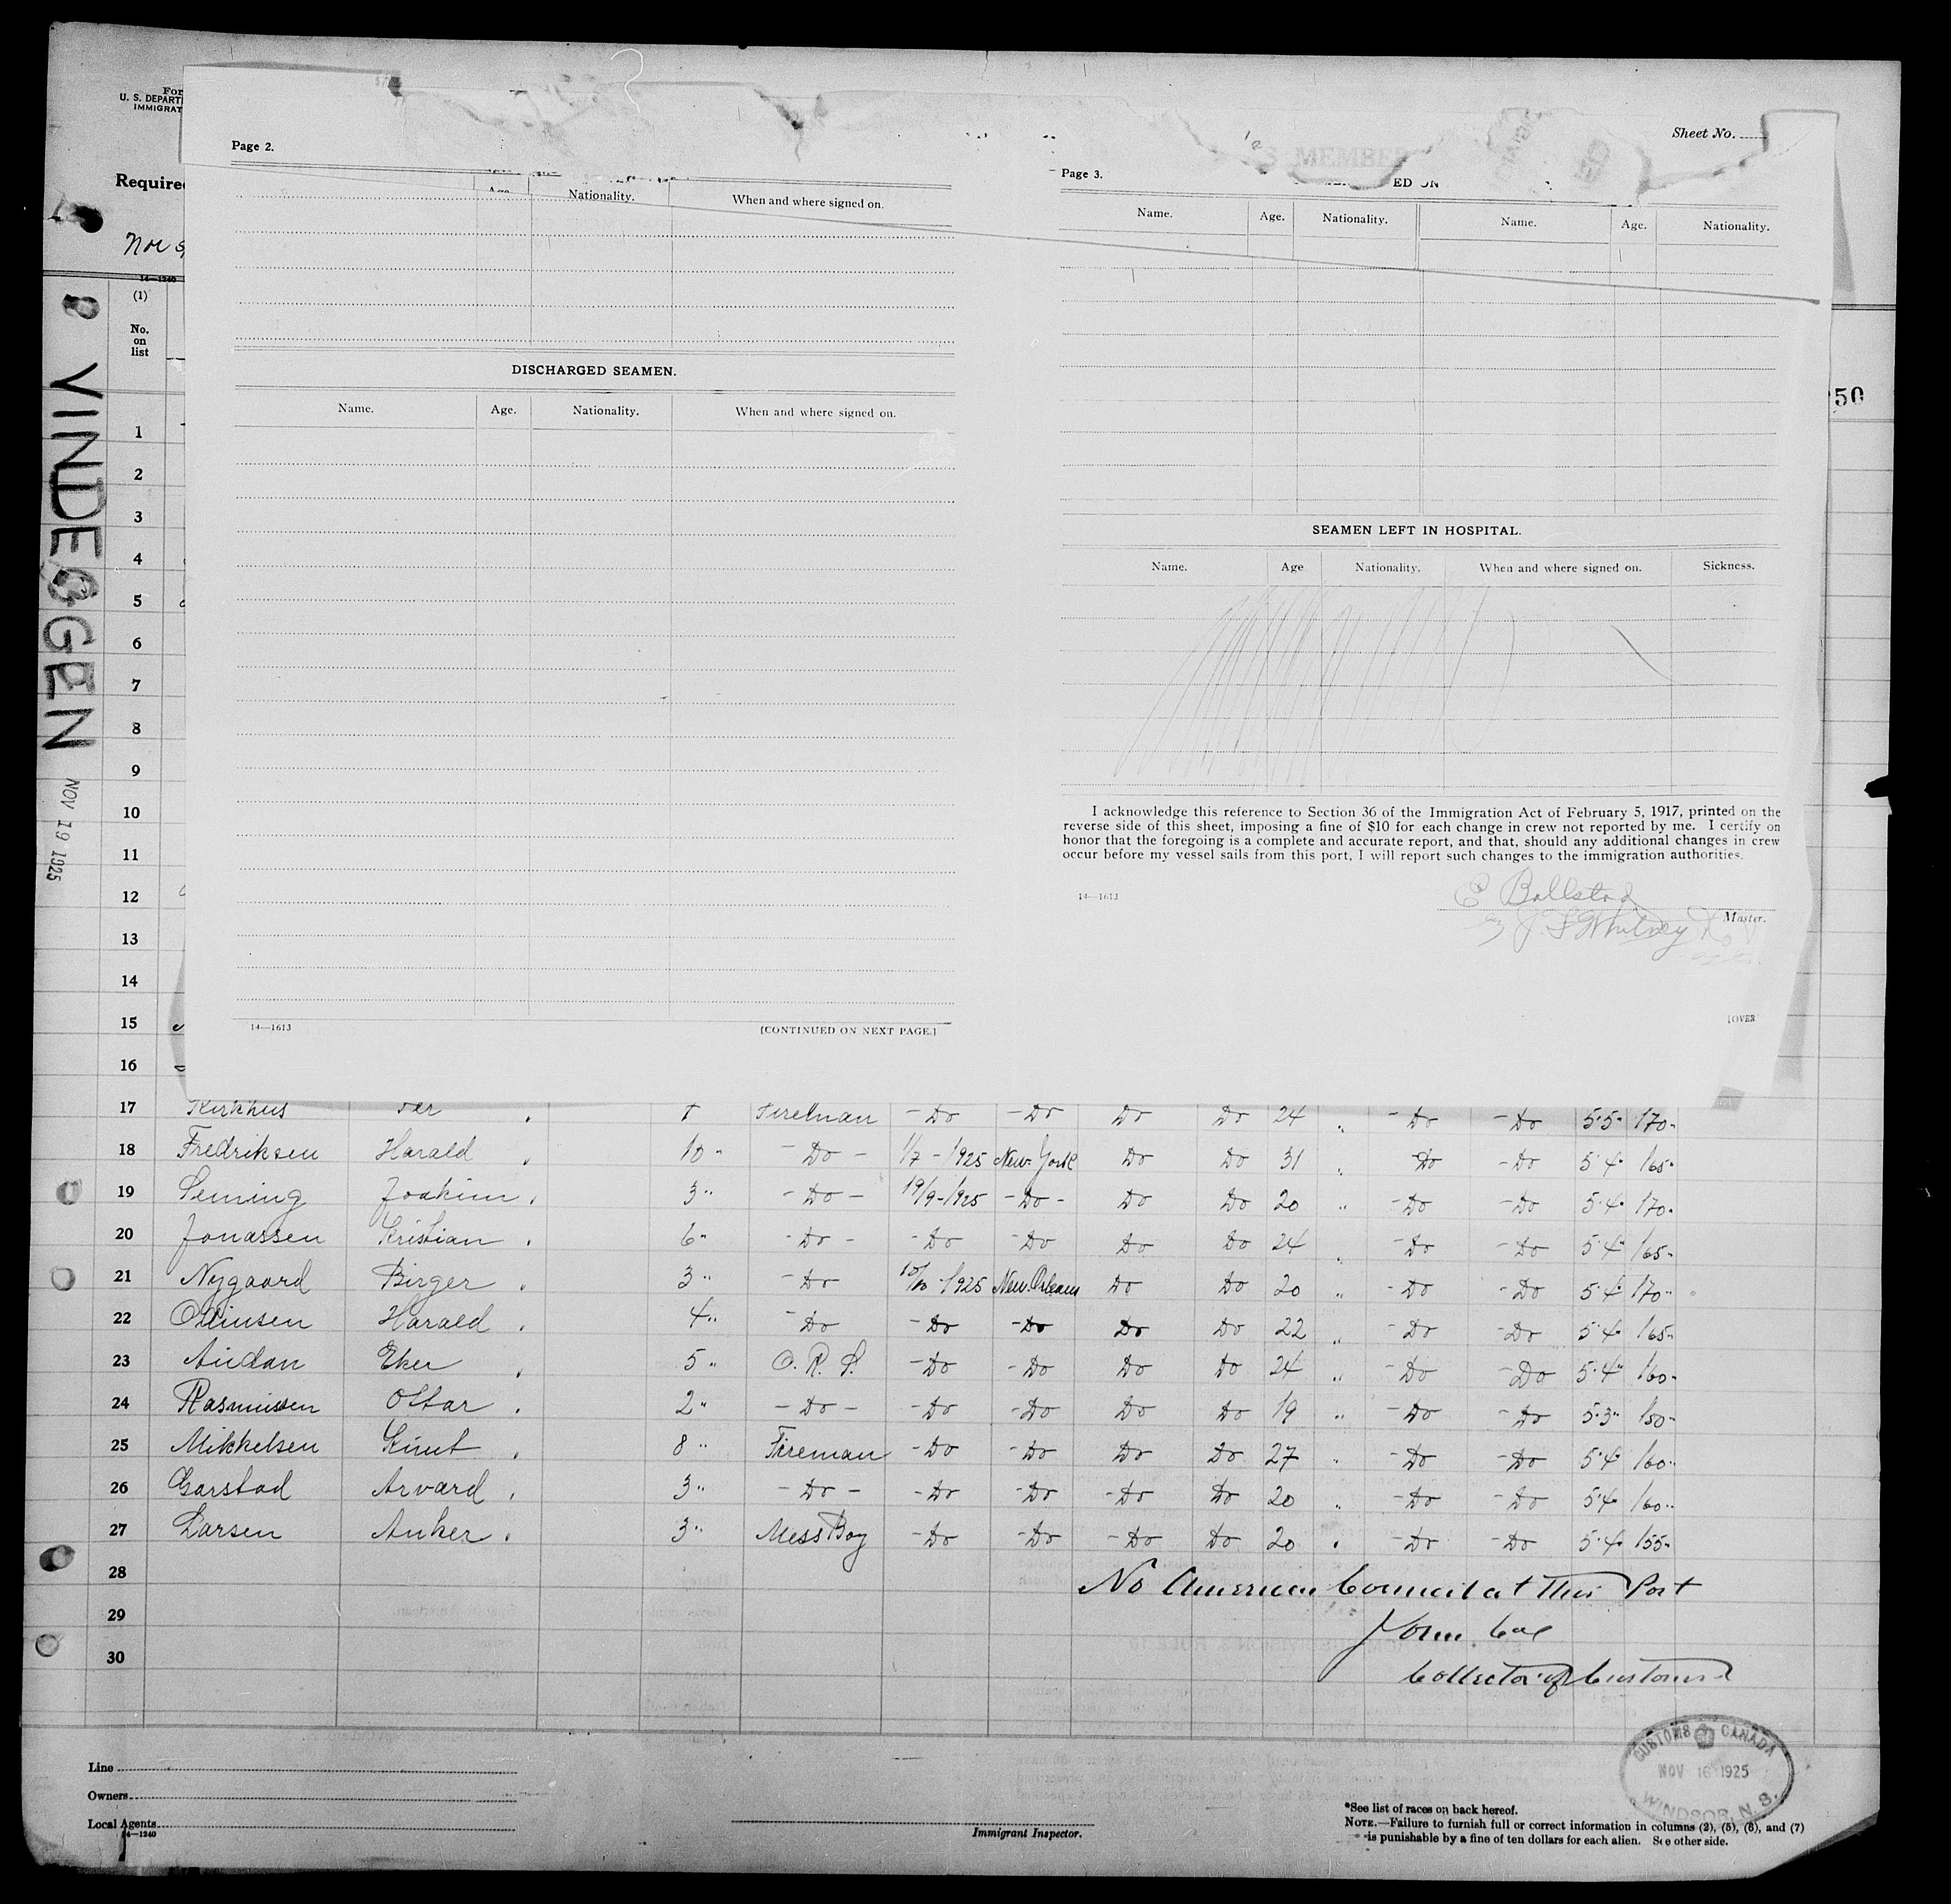 For
U. S. DEPART
IMMIGRAT
Required
14—1240
(1)
No.
on
list
VINDEGGEN
NOV 19 1925
50
Page 2.
Age. Nationality. When and where signed on.
DISCHARGED SEAMEN.
Name. Age. Nationality. When and where signed on.
14—1613 [CONTINUED ON NEXT PAGE.]
Sheet No.
S MEMBER
Page 3.
ED ON
Name. Age. Nationality. Name. Age. Nationality.
SEAMEN LEFT IN HOSPITAL.
Name. Age Nationality. When and where signed on. Sickness.
I acknowledge this reference to Section 36 of the Immigration Act of February 5, 1917, printed on the
reverse side of this sheet, imposing a fine of $10 for each change in crew not reported by me. I certify on
honor that the foregoing is a complete and accurate report, and that, should any additional changes in crew
occur before my vessel sails from this port, I will report such changes to the immigration authorities.
14—1613
E Bollstad
J. F Whitney
Master.
[OVER
1
2
3
4
5
6
7
8
9
10
11
12
13
14
15
16
17 Kirkhus Per Fireman -Do -Do Do Do 24 " -Do -Do 5·5" 170-
18 Fredriksen Harald 10 " -Do- 1/7-1925 New-York Do Do 31 " -Do -Do 5·4" 165-
19 Joakim 3 " -Do- 19/9-1925 -Do- Do Do 20 " -Do -Do 5·4" 170-
20 Jonassen Kristian 6 " -Do- -Do -Do Do Do 24 " -Do -Do 5·4" 165-
21 Nygaard Birger 3 " -Do 10/10-1925 New-Orleans Do Do 20 " -Do -Do 5·4" 170-
22 Harald 4 " -Do -Do -Do Do Do 22 " -Do -Do 5·4" 165-
23 Audan Eker 5 " O. R. S. -Do -Do Do Do 24 " -Do -Do 5·4" 160-
24 Rasmussen Ottar 2 " -Do- -Do -Do Do Do 19 " -Do -Do 5·3" 150-
25 Mikkelsen Knut 8 " Fireman -Do -Do Do Do 27 " -Do -Do 5·4" 160-
26 Garstad Arvard 3 " -Do- -Do -Do -Do Do 20 " -Do -Do 5·4" 160-
27 Larsen Anker 3 " Mess Boy -Do -Do -Do Do 20 " -Do -Do 5·4" 155-
28 No American Councilat This Port
29 John
30 Collector of Customs
CUSTOMS CANADA
NOV 16 1925
WINDSOR, N. S.
Line
Owners
Local Agents
14—1240
Immigrant Inspector.
*See list of races on back hereof.
NOTE.—Failure to furnish full or correct information in columns (2), (5), (6), and (7)
is punishable by a fine of ten dollars for each alien. See other side.